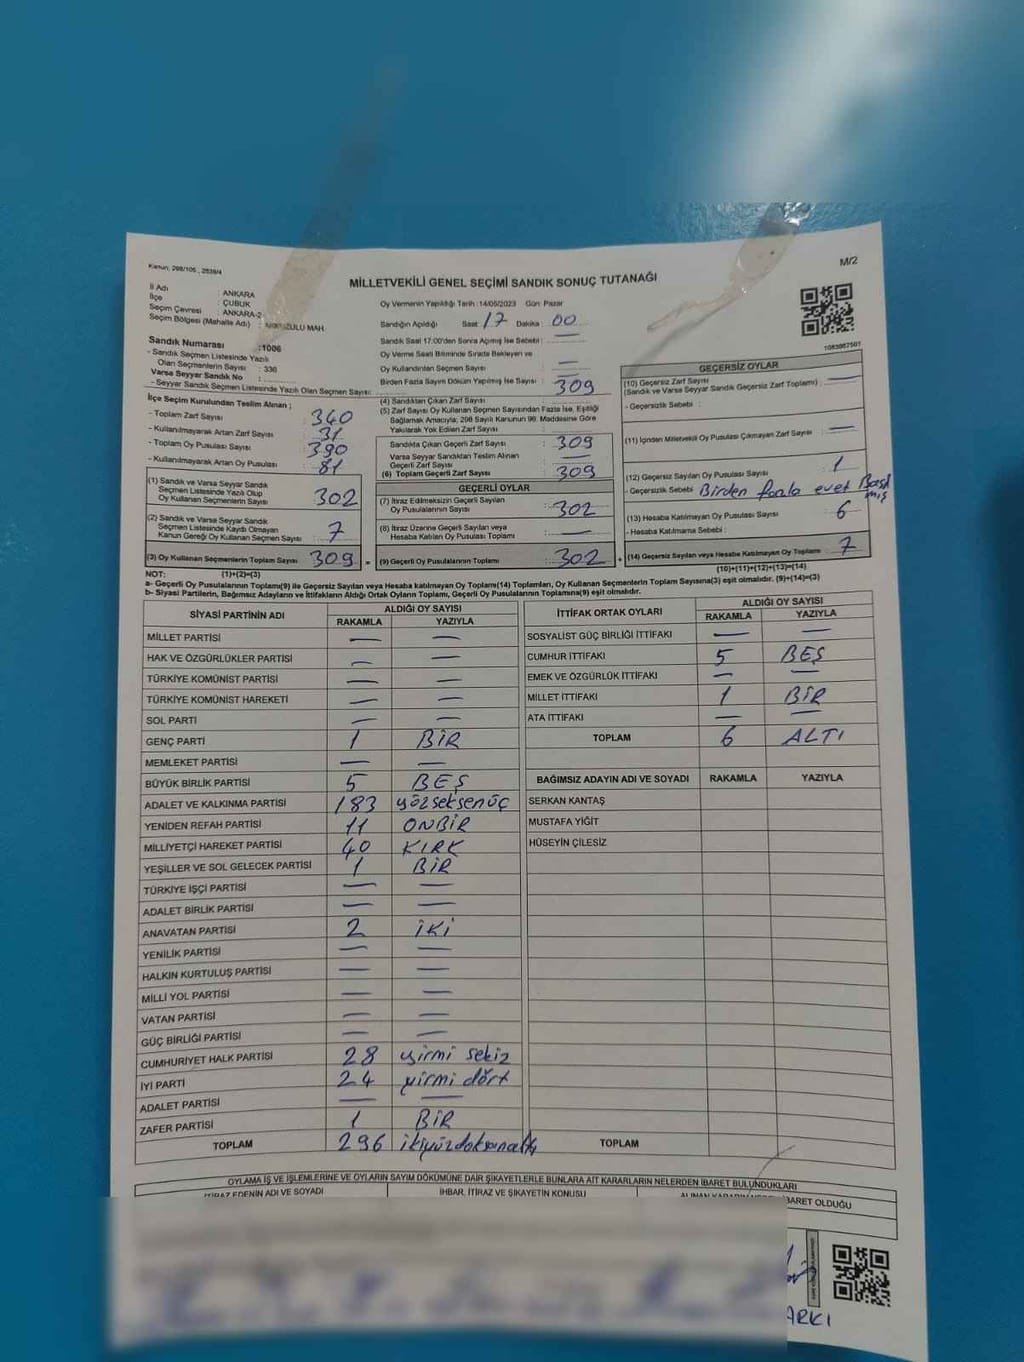 Kanun: 298/105 , 2839/4
M/2
MİLLETVEKİLİ GENEL SEÇİMİ SANDIK SONUÇ TUTANAĞI
İl Adı : ANKARA
İlçe : ÇUBUK
Seçim Çevresi : ANKARA-2
Seçim Bölgesi (Mahalle Adı) : MAH.
Sandık Numarası :1006
- Sandık Seçmen Listesinde Yazılı
Olan Seçmenlerin Sayısı : 336
Varsa Seyyar Sandık No :
- Seyyar Sandık Seçmen Listesinde Yazılı Olan Seçmen Sayısı:
İlçe Seçim Kurulundan Teslim Alınan ;
- Toplam Zarf Sayısı : 340
- Kullanılmayarak Artan Zarf Sayısı : 31
- Toplam Oy Pusulası Sayısı : 390
- Kullanılmayarak Artan Oy Pusulası : 81
(1) Sandık ve Varsa Seyyar Sandık
Seçmen Listesinde Yazılı Olup
Oy Kullanan Seçmenlerin Sayısı : 302
(2) Sandık ve Varsa Seyyar Sandık
Seçmen Listesinde Kayıtlı Olmayan
Kanun Gereği Oy Kullanan Seçmen Sayısı : 7
(3) Oy Kullanan Seçmenlerin Toplam Sayısı : 309 =
Oy Vermenin Yapıldığı Tarih :14/05/2023 Gün: Pazar
Sandığın Açıldığı Saat : 17 Dakika : 00
Sandık Saat 17:00'den Sonra Açılmış İse Sebebi : —
Oy Verme Saati Bitiminde Sırada Bekleyen ve
Oy Kullandırılan Seçmen Sayısı : —
Birden Fazla Sayım Döküm Yapılmış İse Sayısı : —
(4) Sandıktan Çıkan Zarf Sayısı : 309
(5) Zarf Sayısı Oy Kullanan Seçmen Sayısından Fazla İse, Eşitliği
Sağlamak Amacıyla; 298 Sayılı Kanunun 98. Maddesine Göre
Yakılarak Yok Edilen Zarf Sayısı :
Sandıkta Çıkan Geçerli Zarf Sayısı : 309
Varsa Seyyar Sandıktan Teslim Alınan
Geçerli Zarf Sayısı : —
(6) Toplam Geçerli Zarf Sayısı : 309
GEÇERLİ OYLAR
(7) İtiraz Edilmeksizin Geçerli Sayılan
Oy Pusulalarının Toplamı : 302
(8) İtiraz Üzerine Geçerli Sayılan veya
Hesaba Katılan Oy Pusulası Toplamı : —
(9) Geçerli Oy Pusulalarının Toplamı : 302 +
1083967501
GEÇERSİZ OYLAR
(10) Geçersiz Zarf Sayısı : —
(Sandık ve Varsa Seyyar Sandık Geçersiz Zarf Toplamı)
- Geçersizlik Sebebi :
(11) İçinden Milletvekili Oy Pusulası Çıkmayan Zarf Sayısı : —
(12) Geçersiz Sayılan Oy Pusulası Sayısı : 1
- Geçersizlik Sebebi : Birden fazla evet Basıl
mış
(13) Hesaba Katılmayan Oy Pusulası Sayısı : 6
- Hesaba Katılmama Sebebi :
(14) Geçersiz Sayılan veya Hesaba Katılmayan Oy Toplamı : 7
NOT: (1)+(2)=(3) (10)+(11)+(12)+(13)=(14)
a- Geçerli Oy Pusulalarının Toplamı(9) ile Geçersiz Sayılan veya Hesaba katılmayan Oy Toplamı(14) Toplamları, Oy Kullanan Seçmenlerin Toplam Sayısına(3) eşit olmalıdır. (9)+(14)=(3)
b- Siyasi Partilerin, Bağımsız Adayların ve İttifakların Aldığı Ortak Oyların Toplamı, Geçerli Oy Pusulalarının Toplamına(9) eşit olmalıdır.
SİYASİ PARTİNİN ADI ALDIĞI OY SAYISI
RAKAMLA YAZIYLA
MİLLET PARTİSİ — —
HAK VE ÖZGÜRLÜKLER PARTİSİ — —
TÜRKİYE KOMÜNİST PARTİSİ — —
TÜRKİYE KOMÜNİST HAREKETİ — —
SOL PARTİ — —
GENÇ PARTİ 1 BİR
MEMLEKET PARTİSİ — —
BÜYÜK BİRLİK PARTİSİ 5 BEŞ
ADALET VE KALKINMA PARTİSİ 183 yüzseksenüç
YENİDEN REFAH PARTİSİ 11 ONBİR
MİLLİYETÇİ HAREKET PARTİSİ 40 KIRK
YEŞİLLER VE SOL GELECEK PARTİSİ 1 BİR
TÜRKİYE İŞÇİ PARTİSİ — —
ADALET BİRLİK PARTİSİ — —
ANAVATAN PARTİSİ 2 İKİ
YENİLİK PARTİSİ — —
HALKIN KURTULUŞ PARTİSİ — —
MİLLİ YOL PARTİSİ — —
VATAN PARTİSİ — —
GÜÇ BİRLİĞİ PARTİSİ — —
CUMHURİYET HALK PARTİSİ 28 yirmi sekiz
İYİ PARTİ 24 yirmi dört
ADALET PARTİSİ — —
ZAFER PARTİSİ 1 BİR
TOPLAM 296 ikiyüzdoksanaltı
İTTİFAK ORTAK OYLARI ALDIĞI OY SAYISI
RAKAMLA YAZIYLA
SOSYALİST GÜÇ BİRLİĞİ İTTİFAKI — —
CUMHUR İTTİFAKI 5 BEŞ
EMEK VE ÖZGÜRLÜK İTTİFAKI — —
MİLLET İTTİFAKI 1 BİR
ATA İTTİFAKI — —
TOPLAM 6 ALTI
BAĞIMSIZ ADAYIN ADI VE SOYADI RAKAMLA YAZIYLA
SERKAN KANTAŞ
MUSTAFA YİĞİT
HÜSEYİN ÇİLESİZ
TOPLAM
OYLAMA İŞ VE İŞLEMLERİNE VE OYLARIN SAYIM DÖKÜMÜNE DAİR ŞİKAYETLERLE BUNLARA AİT KARARLARIN NELERDEN İBARET BULUNDUKLARI
İTİRAZ EDENİN ADI VE SOYADI İHBAR, İTİRAZ VE ŞİKAYETİN KONUSU ALINAN KARARIN İBARET OLDUĞU
ARKI